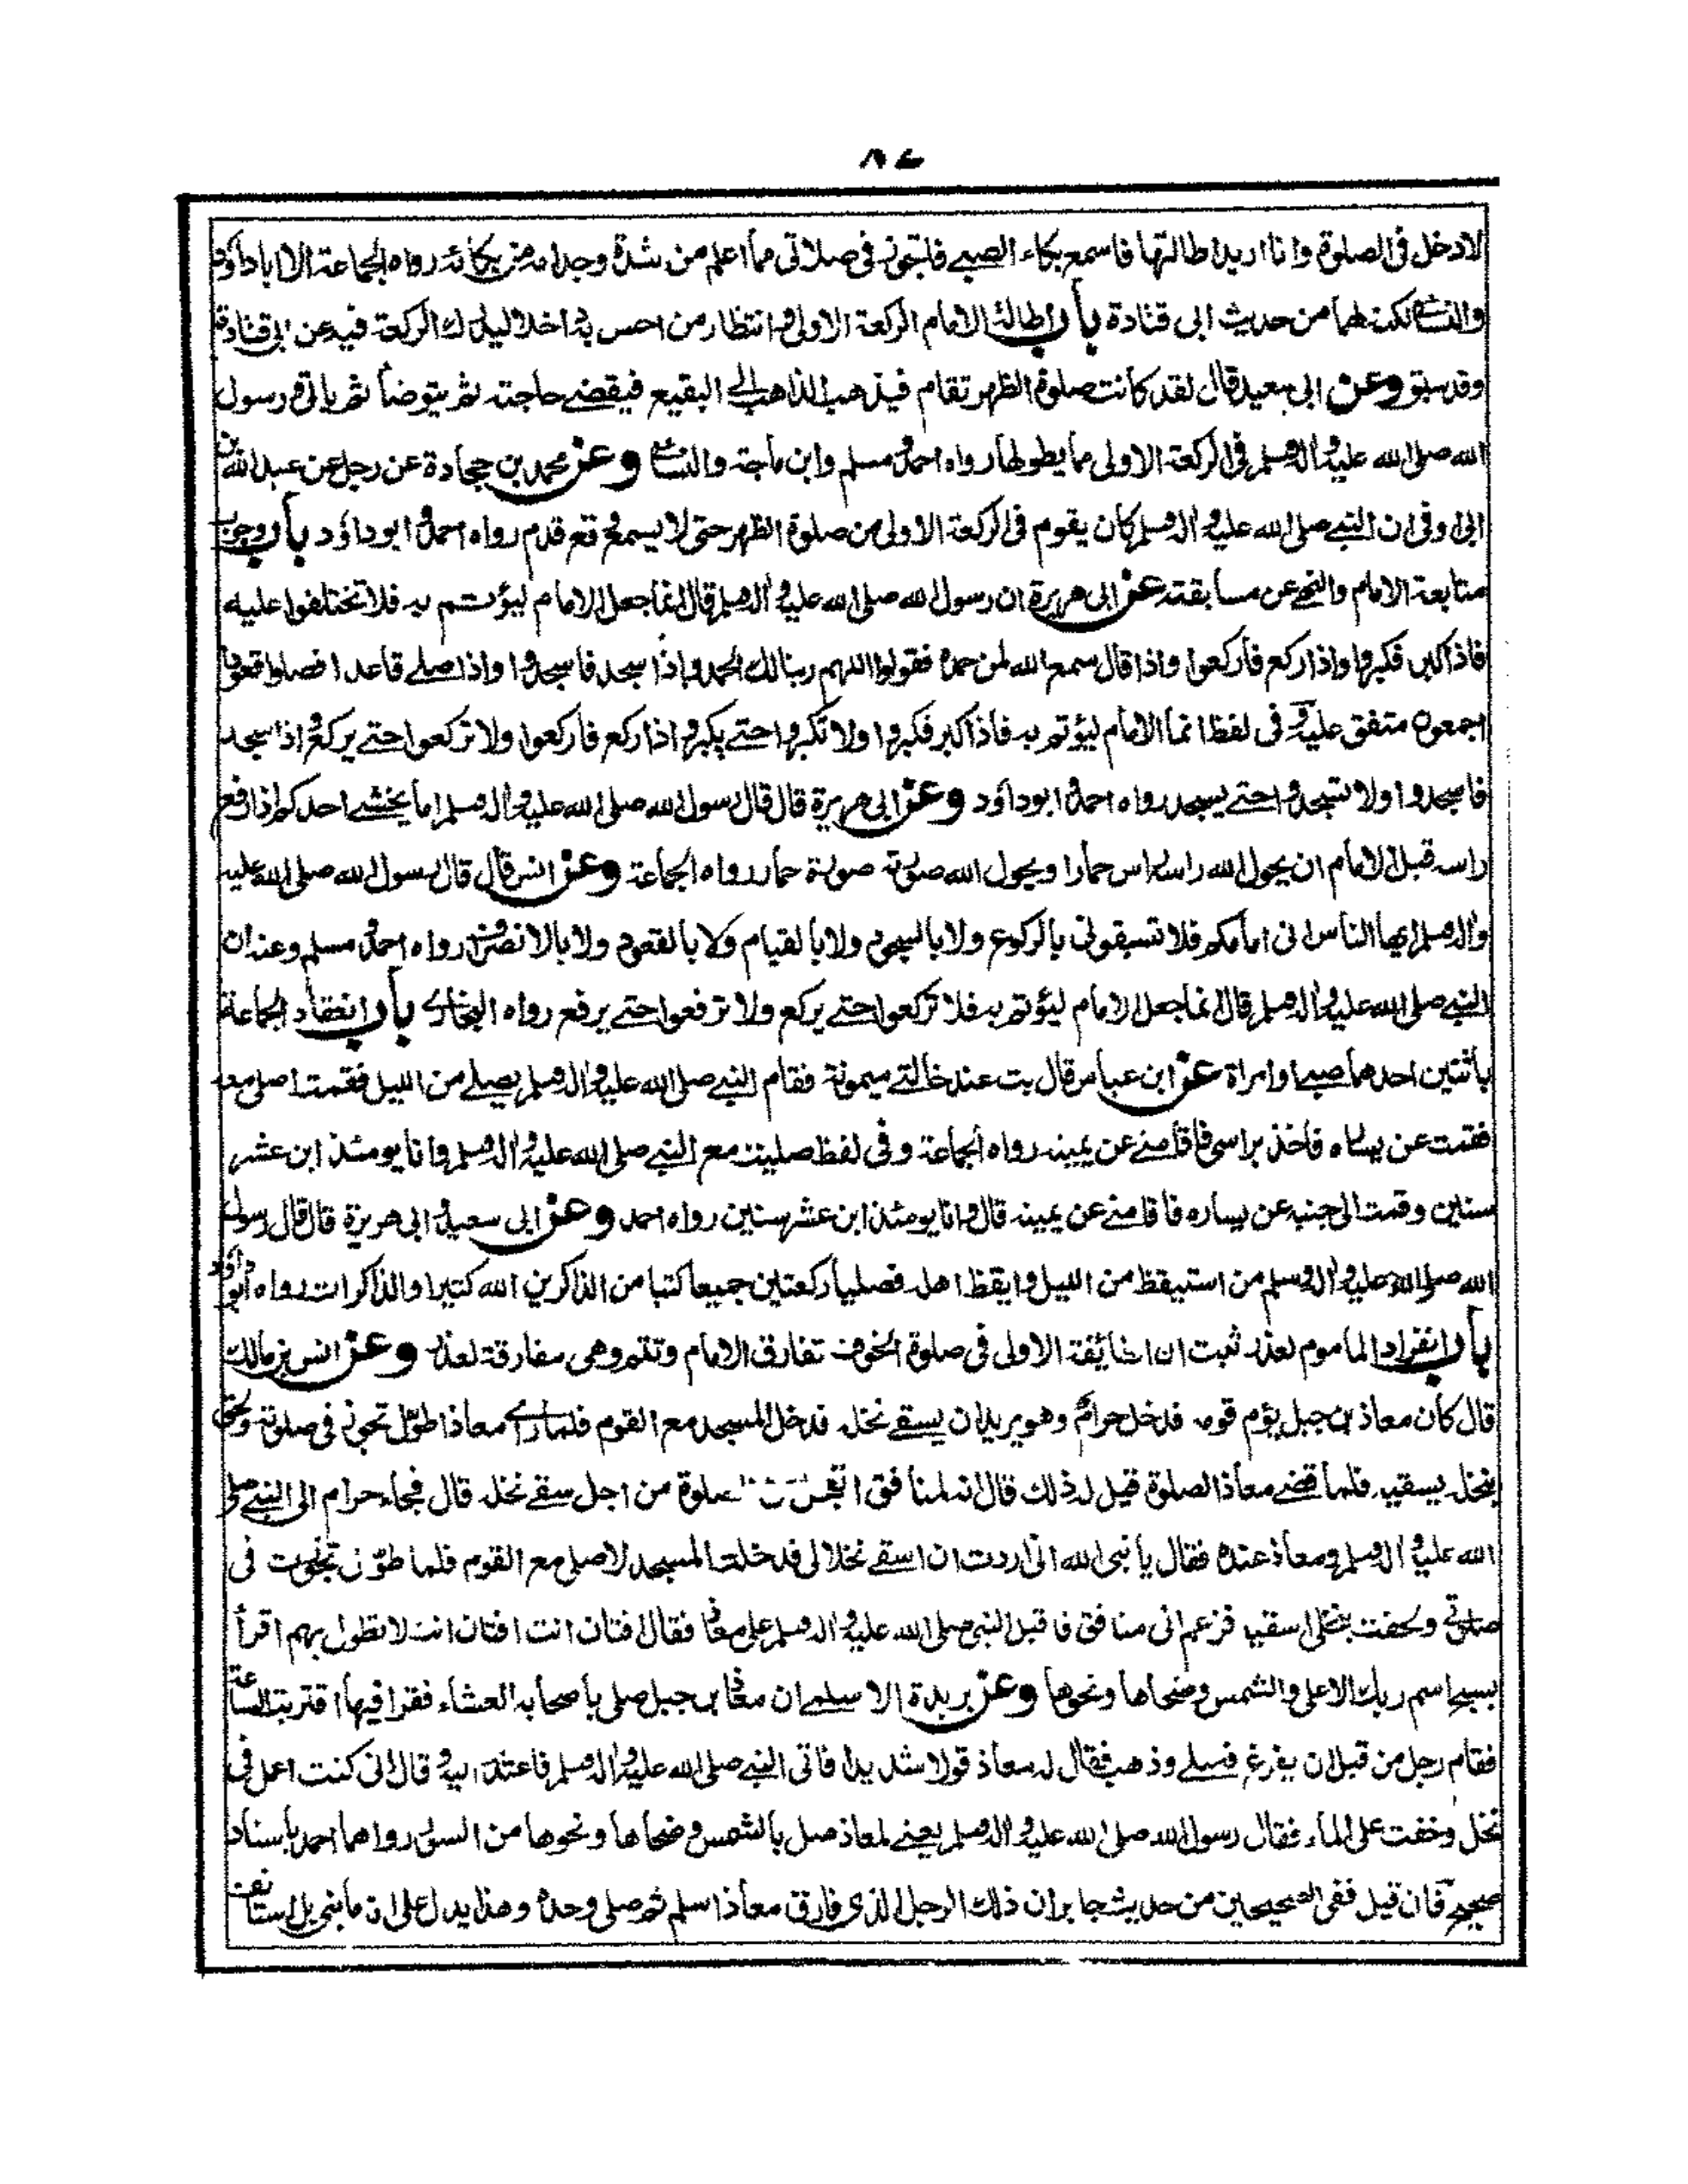 ٨٤
لادخل فى الصلوة وانا اريد اطالتها فاسمع بكاء الصبى فاتجوز فى صلاتى مما اعلم من شدة وجد امه من بكائه رواه الجماعة الا اباداؤد
والنسائى لكنه لهما من حديث ابى قتادة باب اطالة الامام الركعة الاولى وانتظار من احس به داخلا ليدرك الركعة فيه عن ابى قتادة
وقد سبق وعن ابى سعيد قال لقد كانت صلوة الظهر تقام فيذهب الذاهب الى البقيع فيقضى حاجته ثم يتوضأ ثم ياتى ورسول
الله صلى الله عليه واله وسلم فى الركعة الاولى مما يطولها رواه احمد ومسلم وابن ماجة والنسائى وعن محمد بن جحادة عن رجل عن عبدالله بن
ابى اوفى ان النبى صلى الله عليه واله وسلم كان يقوم فى الركعة الاولى من صلوة الظهر حتى لا يسمع وقع قدم رواه احمد وابوداؤد باب وجوب
متابعة الامام والنهى عن مسابقته عن ابى هريرة ان رسول الله صلى الله عليه واله وسلم قال انما جعل الامام ليؤتم به فلا تختلفوا عليه
فاذا كبر فكبروا واذا ركع فاركعوا واذا قال سمع الله لمن حمده فقولوا اللهم ربنا لك الحمد واذا سجد فاسجدوا واذا صلى قاعدا فصلوا قعودا
اجمعون متفق عليه وفى لفظ انما الامام ليؤتم به فاذا كبر فكبروا ولا تكبروا حتى يكبر واذا ركع فاركعوا ولا تركعوا حتى يركع واذا سجد
فاسجدوا ولا تسجدوا حتى يسجد رواه احمد وابوداؤد وعن ابى هريرة قال قال رسول الله صلى الله عليه واله وسلم اما يخشى احدكم اذا رفع
راسه قبل الامام ان يحول الله راسه راس حمار او يحول الله صورته صورة حمار رواه الجماعة وعن انس قال قال رسول الله صلى الله عليه
واله وسلم ايها الناس انى امامكم فلا تسبقونى بالركوع ولا بالسجود ولا بالقيام ولا بالقعود ولا بالانصراف رواه احمد ومسلم وعنه ان
النبى صلى الله عليه واله وسلم قال انما جعل الامام ليؤتم به فلا تركعوا حتى يركع ولا ترفعوا حتى يرفع رواه البخارى باب انعقاد الجماعة
باثنين احدهما صبى او امراة عن ابن عباس قال بت عند خالتى ميمونة فقام النبى صلى الله عليه واله وسلم يصلى من الليل فقمت اصلى معه
فقمت عن يساره فاخذ براسى فاقامنى عن يمينه رواه الجماعة وفى لفظ صليت مع النبى صلى الله عليه واله وسلم وانا يومئذ ابن عشر
سنين وقمت الى جنبه عن يساره فاقامنى عن يمينه قال وانا يومئذ ابن عشر سنين رواه احمد وعن ابى سعيد وابى هريرة قال قال رسول
الله صلى الله عليه واله وسلم من استيقظ من الليل وايقظ اهله فصليا ركعتين جميعا كتبا من الذاكرين الله كثيرا والذاكرات رواه ابو داؤد
باب انفراد الماموم لعذر ثبت ان الطائفة الاولى فى صلوة الخوف تفارق الامام وتتم وهى مفارقة لعذر وعن انس بن مالك
قال كان معاذ بن جبل يؤم قومه فدخل حرام وهو يريد ان يسقى نخله فدخل المسجد مع القوم فلما راى معاذا طوّل تجوز فى صلوته ولحق
بنخله يسقيه فلما قضى معاذ الصلوة قيل له ذلك قال انه لمنافق ايعجل عن الصلوة من اجل سقى نخله قال فجاء حرام الى النبى صلى
الله عليه واله وسلم ومعاذ عنده فقال يا نبى الله انى اردت ان اسقى نخلا لى فدخلت المسجد لاصلى مع القوم فلما طوّل تجوزت فى
صلاتى ولحقت بنخلى اسقيه فزعم انى منافق فاقبل النبى صلى الله عليه واله وسلم على معاذ فقال افتان انت افتان انت لا تطول بهم اقرأ
بسبح اسم ربك الاعلى والشمس وضحاها ونحوها وعن بريدة الاسلمى ان معاذ بن جبل صلى باصحابه العشاء فقرا فيها اقتربت الساعة
فقام رجل من قبل ان يفرغ فصلى وذهب فقال له معاذ قولا شديدا فاتى النبى صلى الله عليه واله وسلم فاعتذر اليه وقال انى كنت اعمل فى
نخل وخفت على الماء فقال رسول الله صلى الله عليه واله وسلم يعنى لمعاذ صل بالشمس وضحاها ونحوها من السور رواهما احمد باسناد
صحيح فان قيل ففى الصحيحين من حديث جابر ان ذلك الرجل الذى فارق معاذا سلم ثم صلى وحده وهذا يدل على انه ما بنى بل استانف